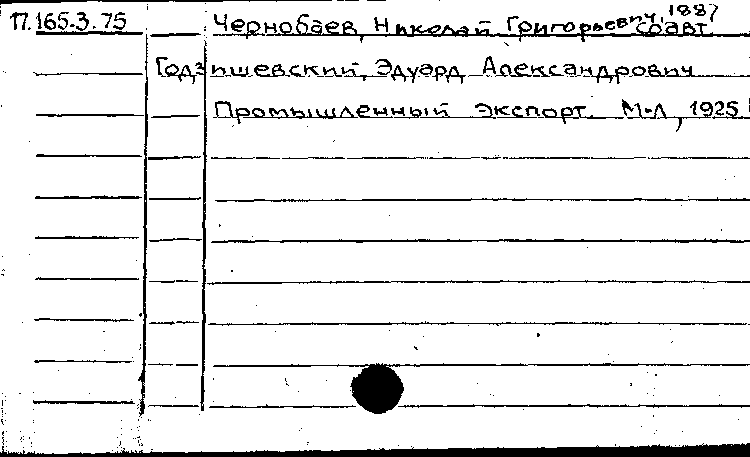 17.165-3.75
Чернобаев, Николай Григорьевич, 1887
соавт.
Годзишевский, Эдуард Александрович
Промышленный экспорт. М-Л, 1925